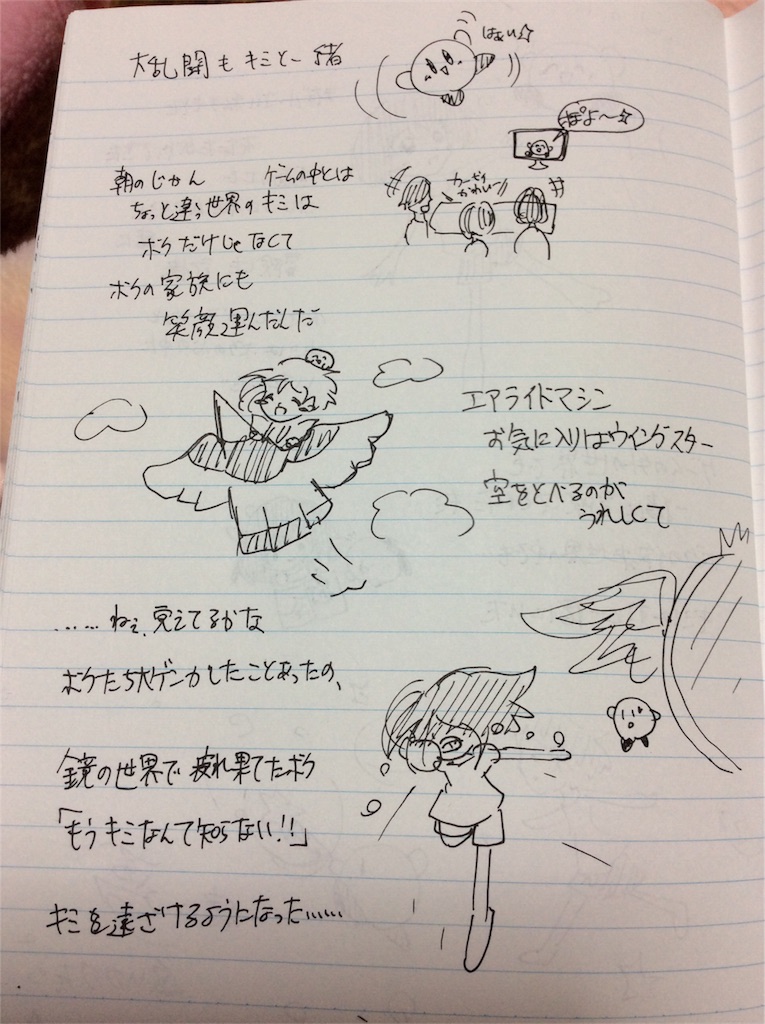 大乱闘もキミと一緒
はぁい☆
ぽよ〜☆
カービィ
かわいい
朝のじかん
ゲームの中とは
ちょっと違う世界のキミは
ボクだけじゃなくて
ボクの家族にも
笑顔運んだんだ
エアライドマシン
お気に入りはウイングスター
空をとべるのが
うれしくて
……ねぇ、覚えてるかな
ボクたち大ゲンカしたことあったの、
鏡の世界で疲れ果てたボク
「もうキミなんて知らない!!」
キミを遠ざけるようになった……